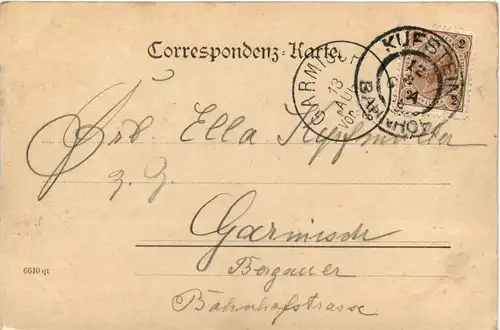 Correspondenz-Karte
2
KUFSTEIN
BAHNHOF
GARMISCH
13
AUG
Frl. Ella
z. Z.
Garmisch
Bergauer
Bahnhofstrasse
6610 qt